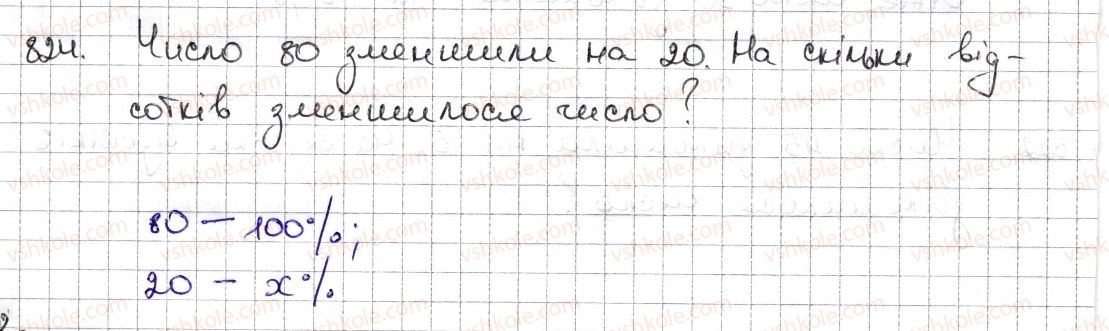 824. Число 80 зменшили на 20. На скільки від-
сотків зменшилося число?
80 — 100%;
20 — x%